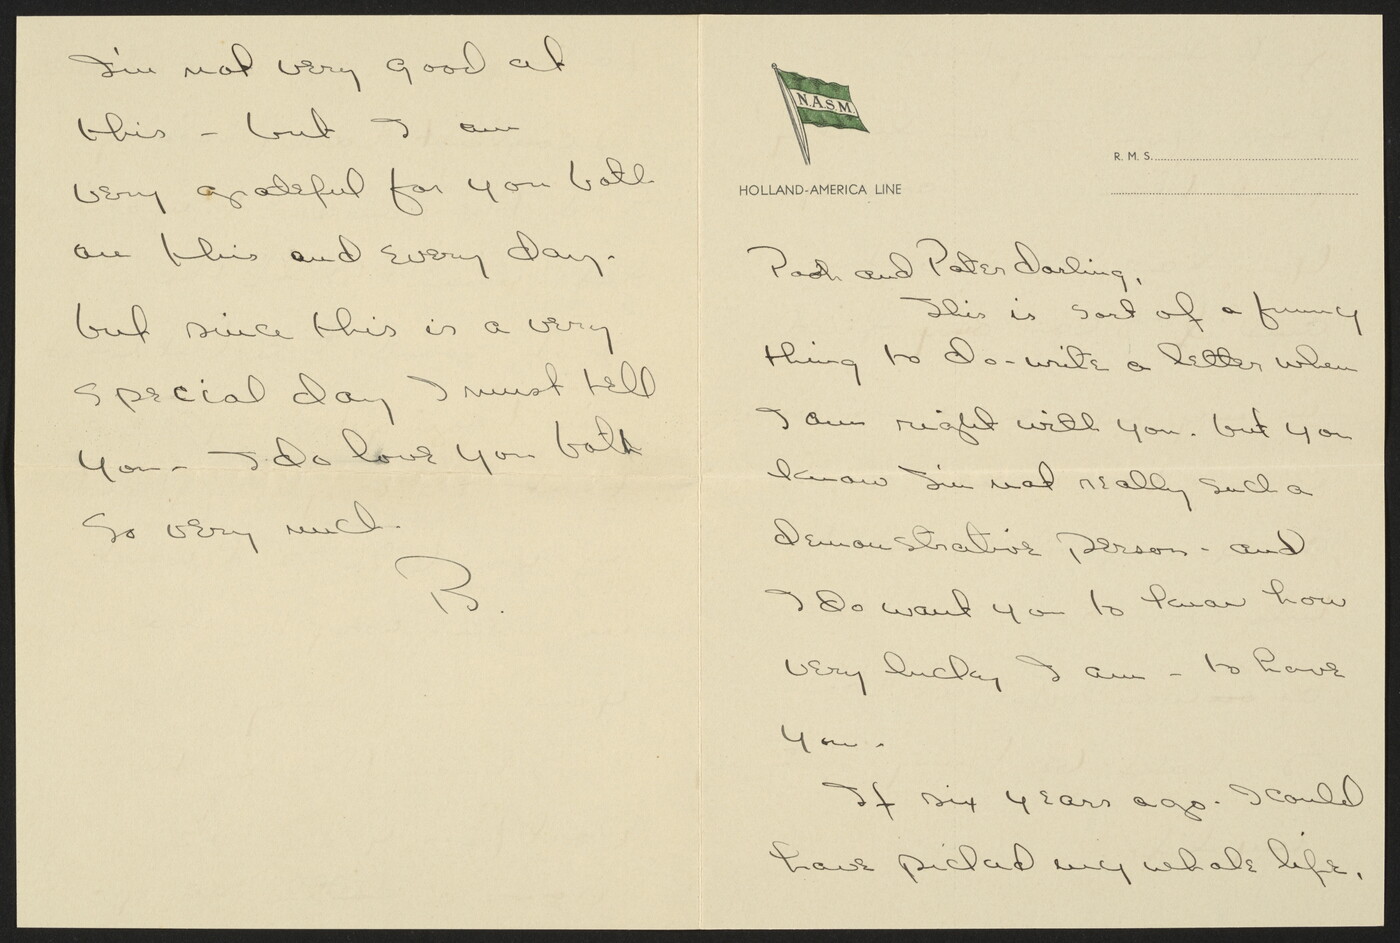 N.A.S.M.
HOLLAND-AMERICA LINE
R. M. S.
Pooh and Pater Darling,
This is sort of a funny
thing to do - write a letter when
I am right with you. but you
know I'm not really such a
demonstrative person - and
I do want you to know how
very lucky I am - to have
you.
If six years ago. I could
have picked my whole life,
I'm not very good at
this - but I am
very grateful for you both
on this and every day.
but since this is a very
special day I must tell
you - I do love you both
so very much.
B.